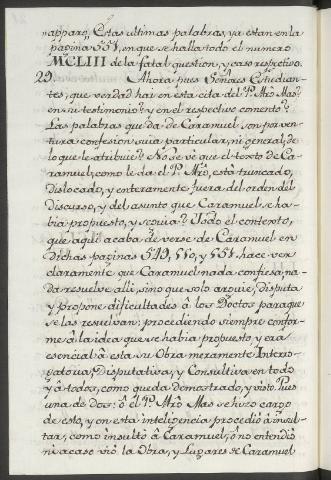 napparo, Estas ultimas palabras, ya estan en la
pagina 551, en que se halla todo el numero
MCLIII de la fatal question, y caso respectivo.
29. Ahora pues Señores Estudian-
tes, que verdad hai en esta cita del P. Mrô Mas?
en su testimonio? y en el respectivo comento?
Las palabras que da de Caramuel son por ven-
tura confesion suia particular, ni general, de
lo que le atribuie? No se ve que el texto de Ca-
ramuel, como le da el P. Mrô, està truncado,
dislocado, y enteramente fuera del orden del
discurso, y del asunto que Caramuel se ha-
bia propuesto, y seguia? Todo el contexto,
que aqui acaba de verse de Caramuel en
dichas paginas 549, 550, y 551. hace ver
claramente que Caramuel nada confiesa, na-
da resuelve alli, sino que solo arguie, disputa
y propone dificultades à los Doctos para que
se las resuelvan: procediendo siempre confor-
me à la idea que se habia propuesto, y era
esencial à esta su Obra meramente Interro-
gatoria, Disputativa, y Consultiva en todo
y à todos, como queda demostrado, y visto. Pues
una de dos: ô el P. Mrô Mas se hizo cargo
de esto, y en esta inteligencia procediò à insul-
tar, como insultò à Caramuel; ô no entendiò
ni acaso viò la Obra, y Lugares de Caramuel